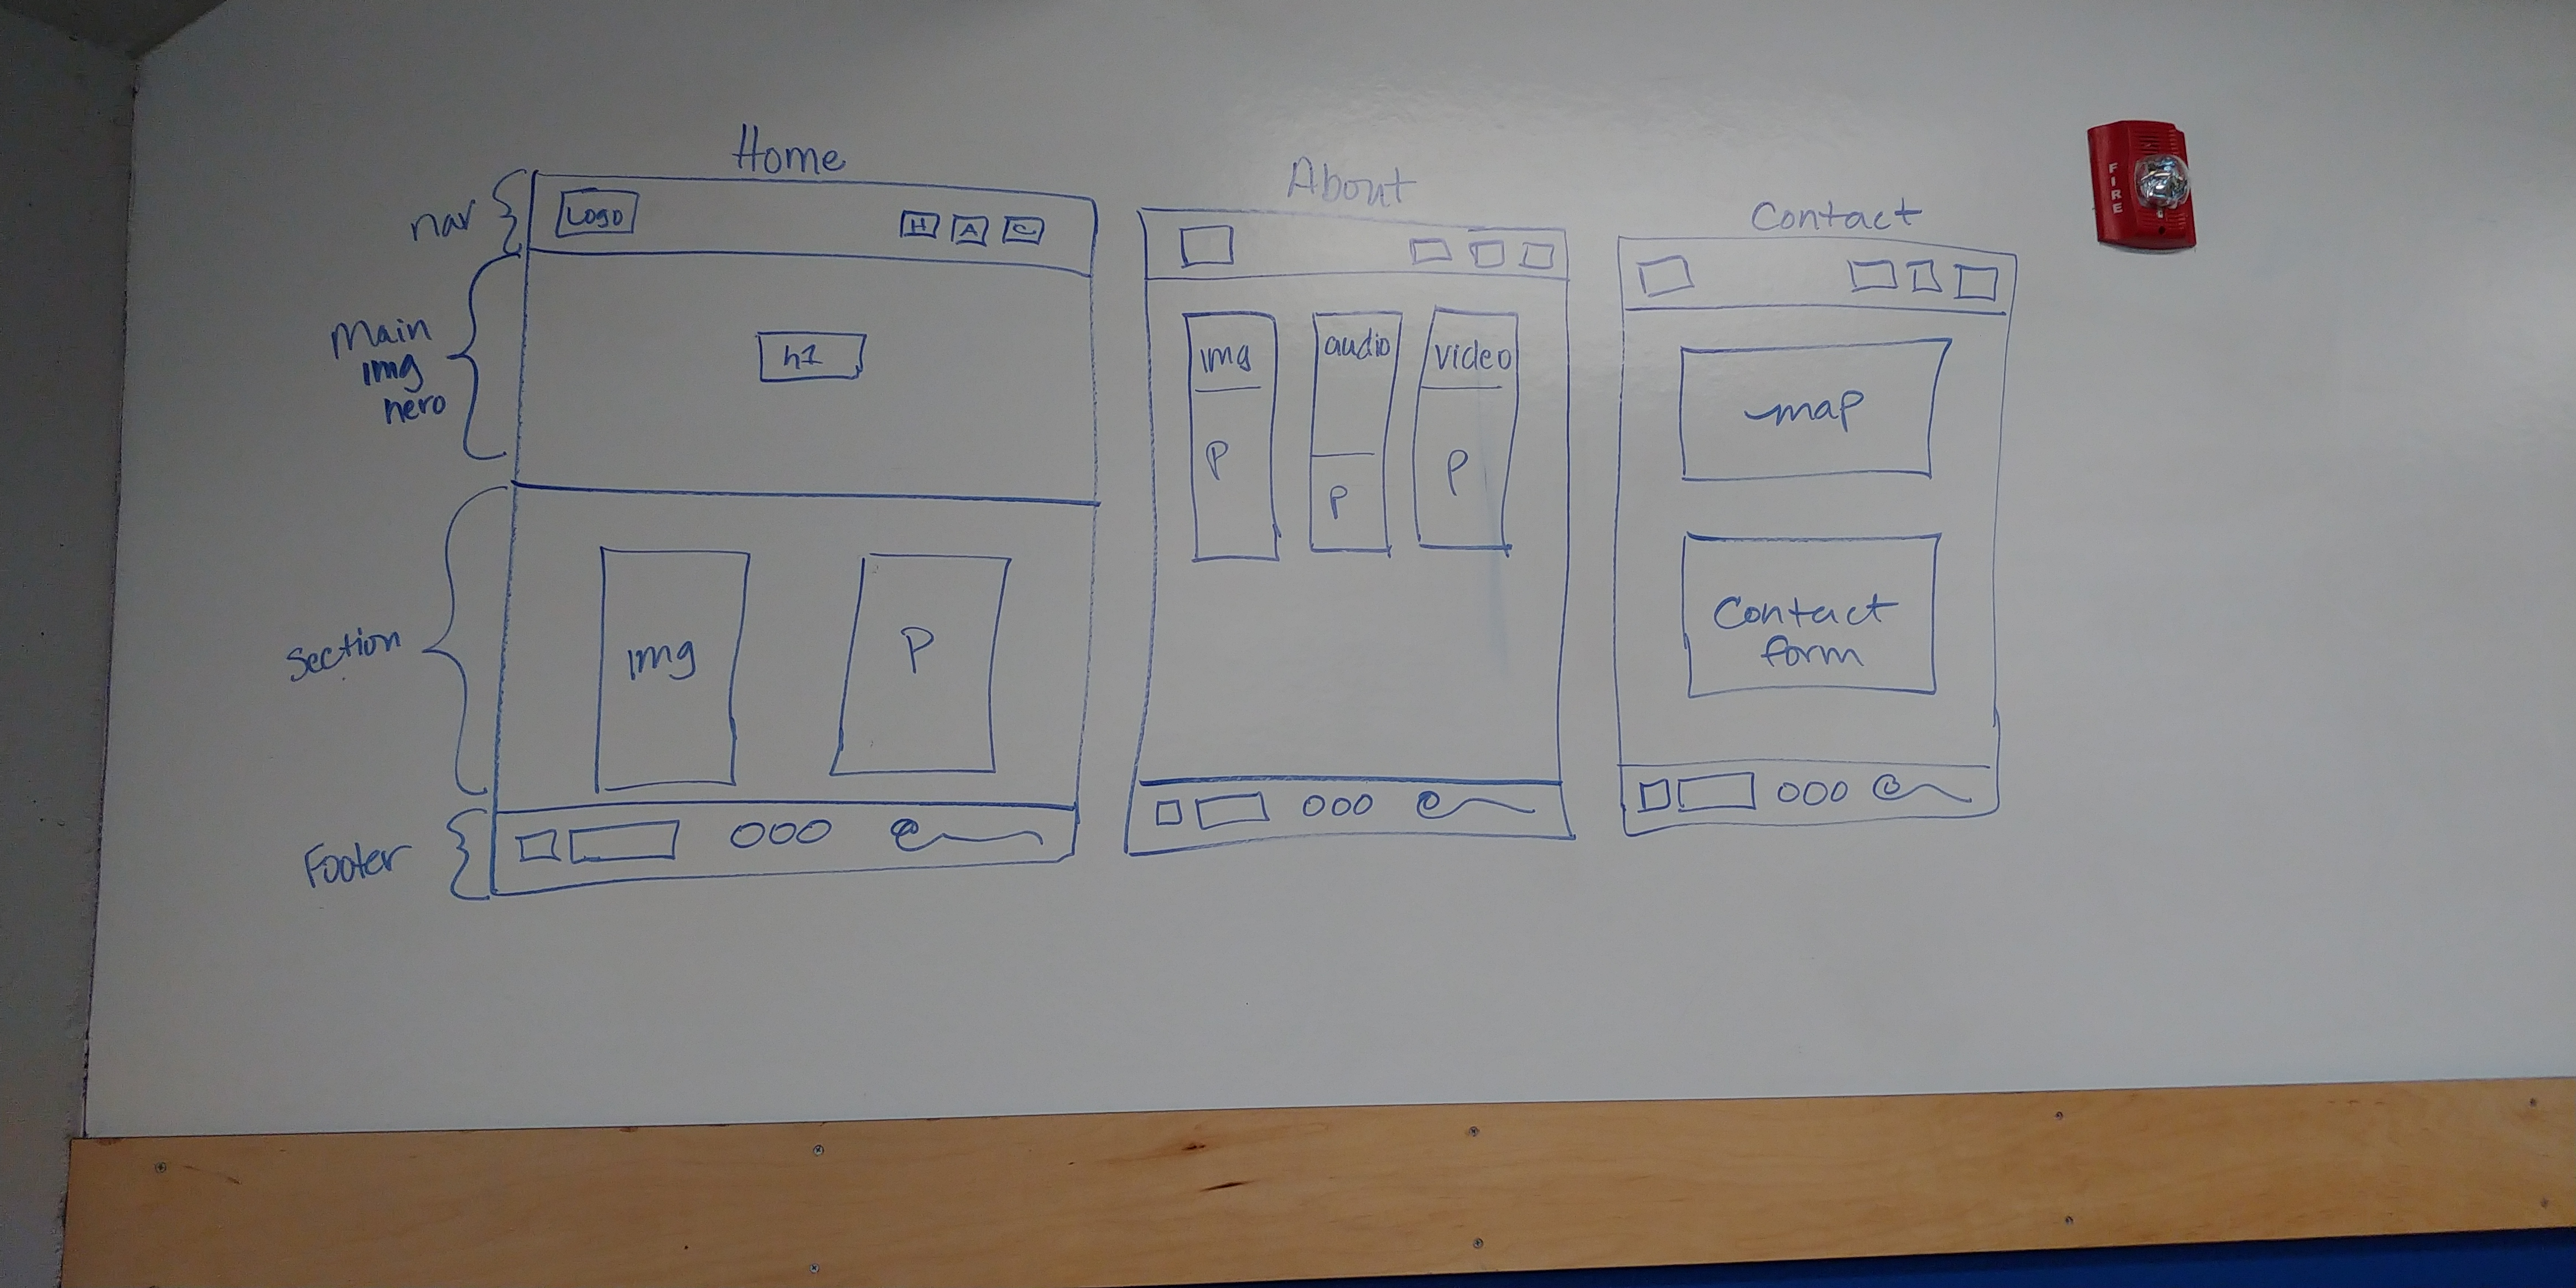 Home
nav
Logo
H A C
Main
img
hero
h1
Section
img
P
Footer
About
img
P
audio
P
video
P
Contact
map
Contact
form
FIRE